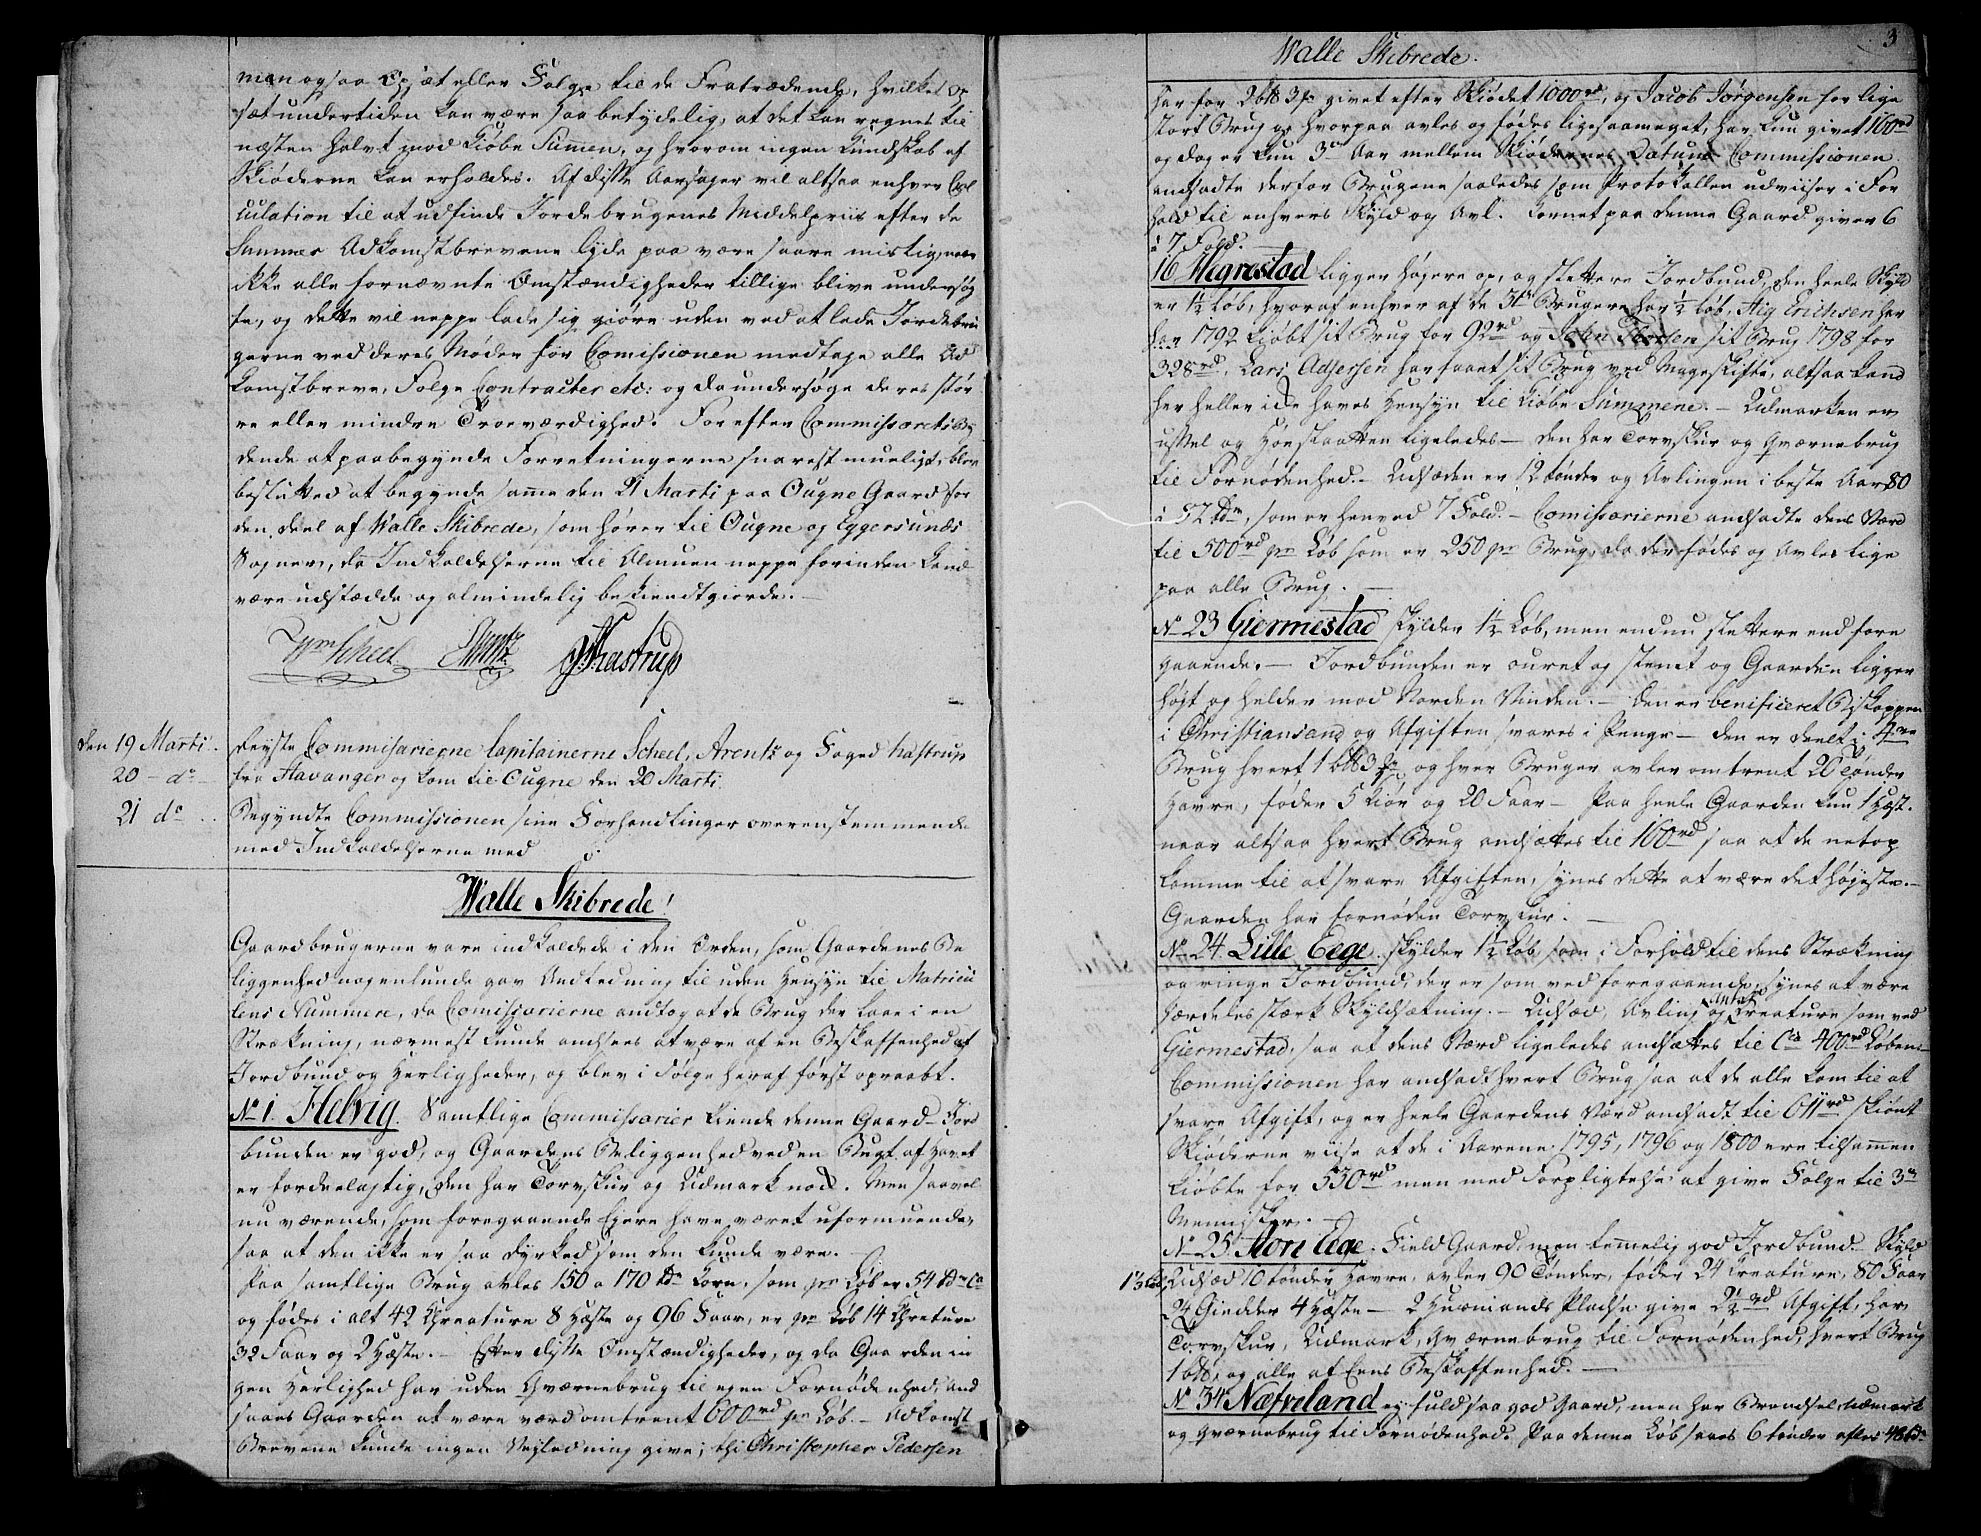 men ogsaa Opsæt eller Følge til de Fratrædende, hvilket Op
sæt undertiden kan være saa betydelig, at det kan regnes til
næsten halvt mod Kiøbe Sumen, og hvorom ingen Kundskab af
Skiøderne kan erholdes. Af disse Aarsager vil altsaa enhver Cal
culation til at udfinde Jordebrugenes Middelpriis efter de
Summer Adkomstbrevene lyde paa være saare mislig, naar
ikke alle fornævnte Omstændigheder tillige blive undersøg
te, og dette vil neppe lade sig giøre uden ved at lade Jordebru
gerne ved deres Møder for Comissionen medtage alle Ad
komstbreve, Følge Contracter etc: og da undersøge deres stør
re eller mindre Troeværdighed. For efter Commissoriets By
dende at paabegynde Forretningerne snarest mueligt, blev
besluttet at begynde same den 21 Marti paa Ougne Gaard for
den deel af Walle Skibrede, som hører til Ougne og Eggersunds
Sogner, da Indkaldelserne til Almuen neppe forinden kand
være udstædde og almindelig bekiendtgiorde. —
Scheel Arentz Kastrup
den 19 Marti. reyste Commissarierne Capitainerne Scheel, Arentz og Foged Kastrup
20 - do - fra Stavanger og kom til Ougne den 20 Marti.
21 do .. Begyndte Commissionen sine Forhandlinger overensstemmende
med Indkaldelserne med
Walle Skibrede!
Gaardbrugerne vare indkaldede i den Orden, som Gaardenes Be
liggenhed nogenlunde gav Anledning til uden Hensyn til Matricu
lens Numere, da Comissarierne andtog at de Brug der laae i en
Strækning, nærmest kunde andsees at være af en Beskaffenhed af
Jordbund og Herligheder, og blev i Følge heraf først opraabt.
No 1. Helvig. Samtlige Commissarier kiende denne Gaard - Jord
bunden er god, og Gaardens Beliggenhed ved en Bugt af Havet
er fordeelagtig, den har Torvskur og Udmark nok. Men saavel
nu værende, som foregaaende Ejere have været uformuende,
saa at den ikke er saa dyrked som den kunde være. —
Paa samtlige Brug avles 150 a 170 tdr Korn, som pr Løb er 54 tdr Ca
og fødes i alt 42 Creature 8 Hæste og 96 Faar, er pr Løb 14 Creature
32 Faar og 2 Hæste. — Efter disse Omstændigheder, og da Gaarden in
gen Herlighed har uden Qværnebrug til egen Fornødenhed, and
saaes Gaarden at være værd omtrent 600rd pr Løb. — Adkomst
Brevene kunde ingen Vejledning give; thi Christopher Pedersen
3
Walle Skibrede.
har for 2 givet efter Skiødet 1000rd, og Jacob Jørgensen for lige
stort Brug hvorpaa avles og fødes ligesaameget, har kun givet 160rd
og dog er kun 3 Aar mellem Skiødernes Datum Commissionen
andsadte derfor Brugene saaledes som Protokollen udviiser i For
hold til enhvers Skyld og Avl. Kornet paa denne Gaard giver 6
a 7 Fold.
16 Hegrestad ligger højere op, og slettere Jordbund, den heele Skyld
er 1½ Løb, hvoraf enhver af de 3de Brugere har ½ Løb, Stig Erichsen har
1792 kiøbt sit Brug for 92rd og sit Brug 1798 for
398rd, Lars Adsersen har faaet sit Brug ved Mageskifte, altsaa kand
her heller icke haves Hensyn til Kiøbe Sumene. — Udmarken er
ussel og Høeslaatten ligeledes — den har Torvskur og Qværnebrug
til Fornødenhed. — Udsæden er 12 tønder og Avlingen i beste Aar 80
a 82 tdr, som er henved 7 Fold. — Comissarierne andsadte dens Værd
til 500rd pr Løb som er 250 pr Brug, da der fødes og avles lige
paa alle Brug. —
No 23 Giermestad skylder 1½ Løb, men endnu slettere end fore
gaaende. — Jordbunden er ouret og stenet og Gaarden ligger
højt og helder mod Norden Vinden. — Den er benificeret Biskoppen
i Christiansand og Afgiften svares i Penge — den er deelt i 4re
Brug hvert 1 og hver Bruger avler omtrent 20 tønder
Havre, føder 5 Kiør og 20 Faar — Paa heele Gaarden kun 1 Hæst.
naar altsaa hvert Brug andsættes til 160rd saa at de netop
komme til at svare Afgiften, synes dette at være det højeste. —
Gaarden har fornøden Torvskur. —
No 24. Lille Eege. skylder 1½ Løb som i Forhold til dens Strækning
og ringe Jordbund, der er som ved foregaaende, synes at være
særdeles stærk Skyldsætning. — Udsæd, Avling og Antal Creature som ved
Giermestad, saa at dens Værd ligeledes andsættes til Ca 400rd Løben —
Commissionen har andsadt hvert Brug saa at de alle kom til at
svare Afgift, og er heele Gaardens Værd andsadt til 611rd skiønt
Skiøderne viise at de i Aarene 1795, 1796 og 1800 ere tilsamen
kiøbte for 530rd men med Forpligtelse at give Følge til 3de
Mennisker.
No 25 Store Eege. Field Gaard, men temelig god Jordbund. Skyld
1½ Løb, Udsæd 10 tønder Havre, avler 90 Tønder, føder 24 Creature, 80 Faar
24 Giedder 4 Hæste — 2 Huusmands Pladse give 2½rd Afgift, har
Torvskur, Udmark, Qværnebrug til Fornødenhed, hvert Brug
1 og alle af Eens Beskaffenhed. —
No 34 Næfveland ey fuldt saa god Gaard, men har Brendsel, Udmark
og Qværnebrug til Fornødenhed. Paa denne Løb saaes 6 tønder afles 48 tdr